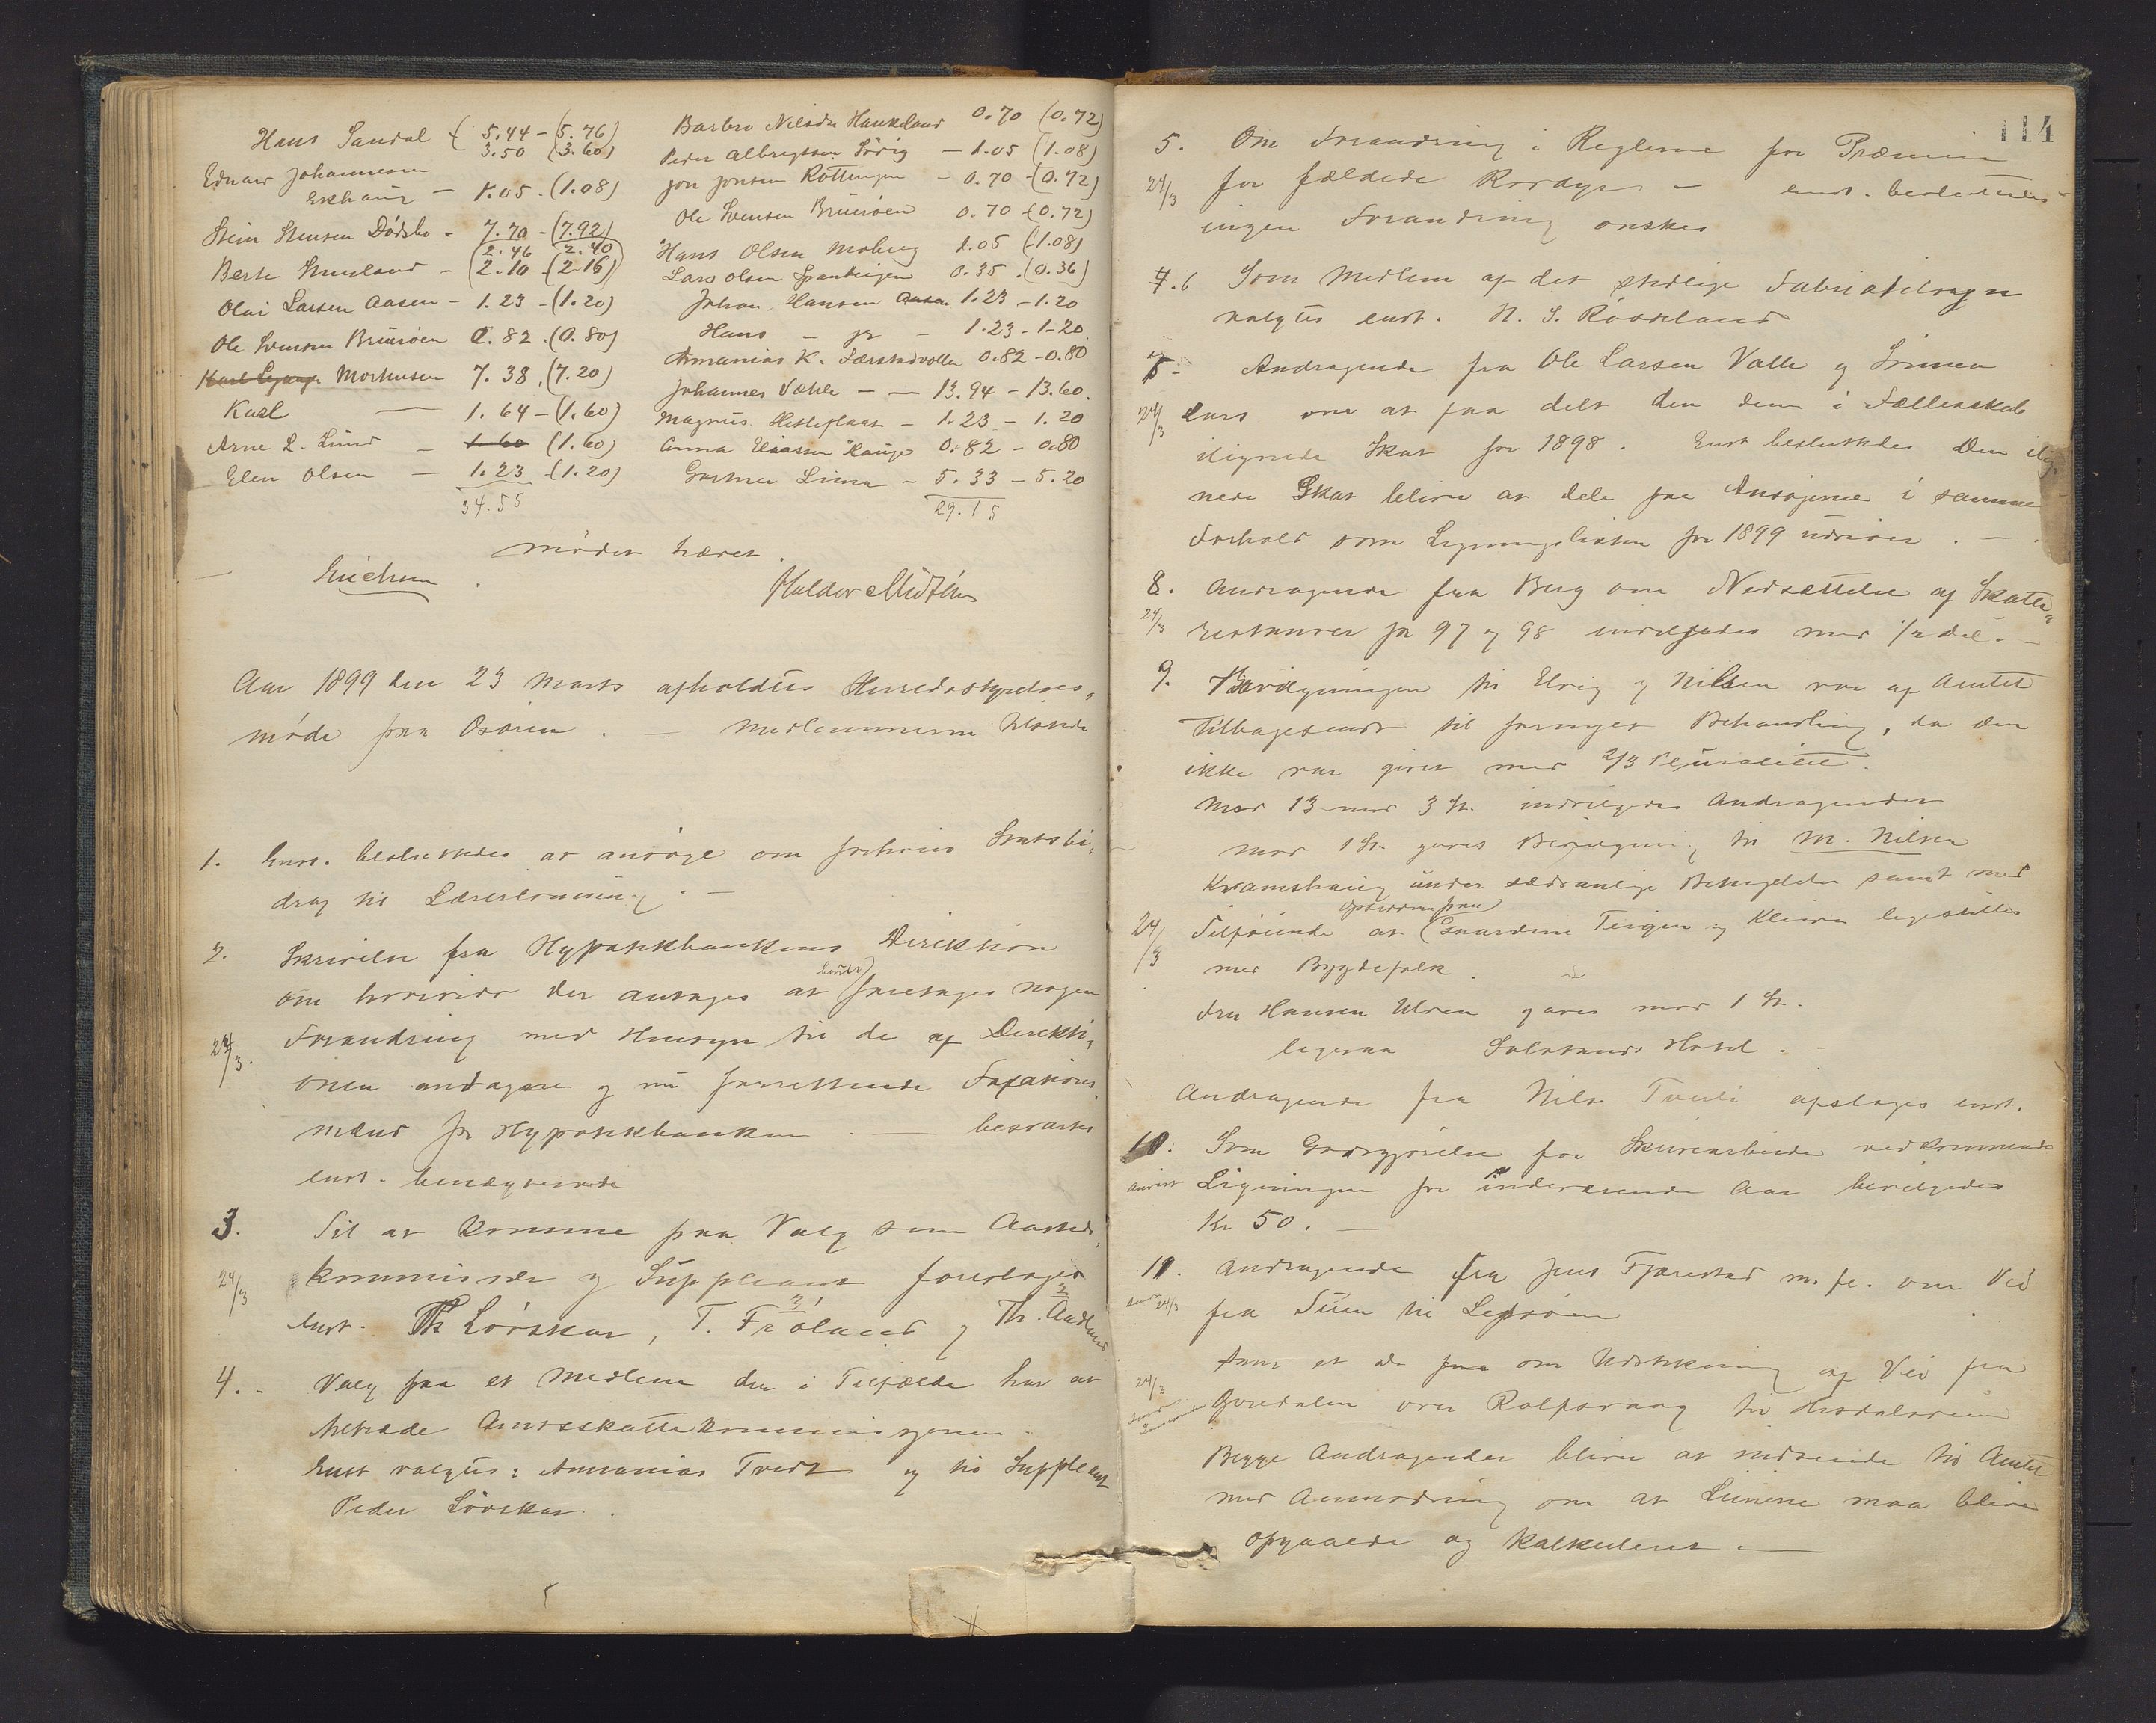 Hans Sandal ( 5.44 - (5.76)
3.50 (3.60)
Edvard Johannesen
Eskhaug - 1.05 - (1.08)
Stein Stensen Dødsbo - 7.70 - (7.92)
(2.46 2.40)
Berte - (2.10 - (2.16)
Olai Larsen Aasen - 1.23 - (1.20)
Ole Svensen Bruarøen 0.82 . (0.80)
Morhusen 7.38 . (7.20)
Karl — 1.64 - (1.60)
Arne L. Lund - 1.60 (1.60)
Elen Olsen — 1.23 - (1.20)
34.55
Barbro Nilsdtr Haukeland 0.70 (0.72)
Peder Albregtsen Sörig - 1.05 (1.08)
Jon Jonsen Röttingen - 0.70 - (0.72)
Ole Svensen Bruarøen 0.70 - (0.72)
Hans Olsen Moberg 1.05 (1.08)
Lars Olsen 0.35 . (0.36)
Johan Hansen Aasen 1.23 - 1.20
Hans - 1.23 - 1.20
Annanias K. Særstadvolle 0.82 - 0.80
Johannes Væhle — — 13.94 - 13.60.
Magnus - 1.23 - 1.20
Anna Eliassen Hauge 0.82 - 0.80
Gartner Lima - 5.33 - 5.20
29.15
Mødet hævet.
Erichsen Haldor Midthus
Aar 1899 den 23 Marts afholdtes Herredsstyrelses-
møde paa Osøren . — Medlemmerne tilstede
1. Enst. besluttedes at ansøge om forhøiet Statsbi-
drag til Lærerlønning . —
2. Skrivelse fra Hypothekbankens Direktion
burde
om hvorvidt der antages at foretages nogen
24/3. Forandring med Hensyn til de af Direkti-
onen antagne og nu fungerende Taxations
mænd for Hypothekbanken . — besvartes
enst. benægtende
3. Til at komme paa Valg som Aasteds-
24/3 kommissær og Suppleant foreslages
3 2
enst. Th Lövskar, T. Fröland og Th.
4. - Valg paa et Medlem der i Tilfælde har at
tiltræde Amtsskattekommissjonen.
Enst valgtes: Annanias Tveit og til Suppleant
Peder Lövskar .
114
5. Om Forandring i Reglerne for Præmier
24/3 for fældede Rovdyr — enst. besluttedes
ingen Forandring ønskes
6 Som Medlem af det stedlige Fabriktilsyn
valgtes enst. N. S. Röskeland
7 - Andragende fra Ole Larsen Valle og Simen
24/3 Lars om at faa delt den dem i Fællesskab
ilignede Skat for 1898 . Enst besluttedes Den ilig-
nede Skat bliver at dele paa Ansøgerne i samme
Forhold som Ligningslisten for 1899 udviser . —
8. Andragende fra Berg om Nedsættelse af Skatte-
24/3 restancer for 97 og 98 indvilgedes med 1/2 del. —
9. Bevilgningen til Elvig og Nilsen var af Amtet
Tilbagesendt til fornyet Behandling, da den
ikke var givet med 2/3 Pluralitet.
Med 13 mod 3 St. indvilgedes Andragender
mod 1 St. gaves Bevilgning til M. Nilsen
Kvamshaug under sædvanlige Betingelser samt med
24/3 Tilføiende at (Opsidderne paa) Gaardene Teigen og Kleiven ligestilles
med Bygdefolk .
Fru Hansen Ulven gaves mod 1 St.
ligesaa Solstrands Hotel . -
Andragende fra Nils Tveit afslages enst.
10. Som Godtgjørelse for Skrivearbeide vedkommende
anvist Ligningen for indeværende Aar bevilgedes
Kr 50. —
11. Andragende fra Jens Fjærestad m. fl. om Vei
24/3 fra Tuen til Lepsöen
Samt et do om Udstikning af Vei fra
24/3 over Rolfsvaag til Hisdalsveien
Begge Andragender bliver at indsende til Amtet
med Anmodning om at Linierne maa blive
opgaaede og kalkuleret . —